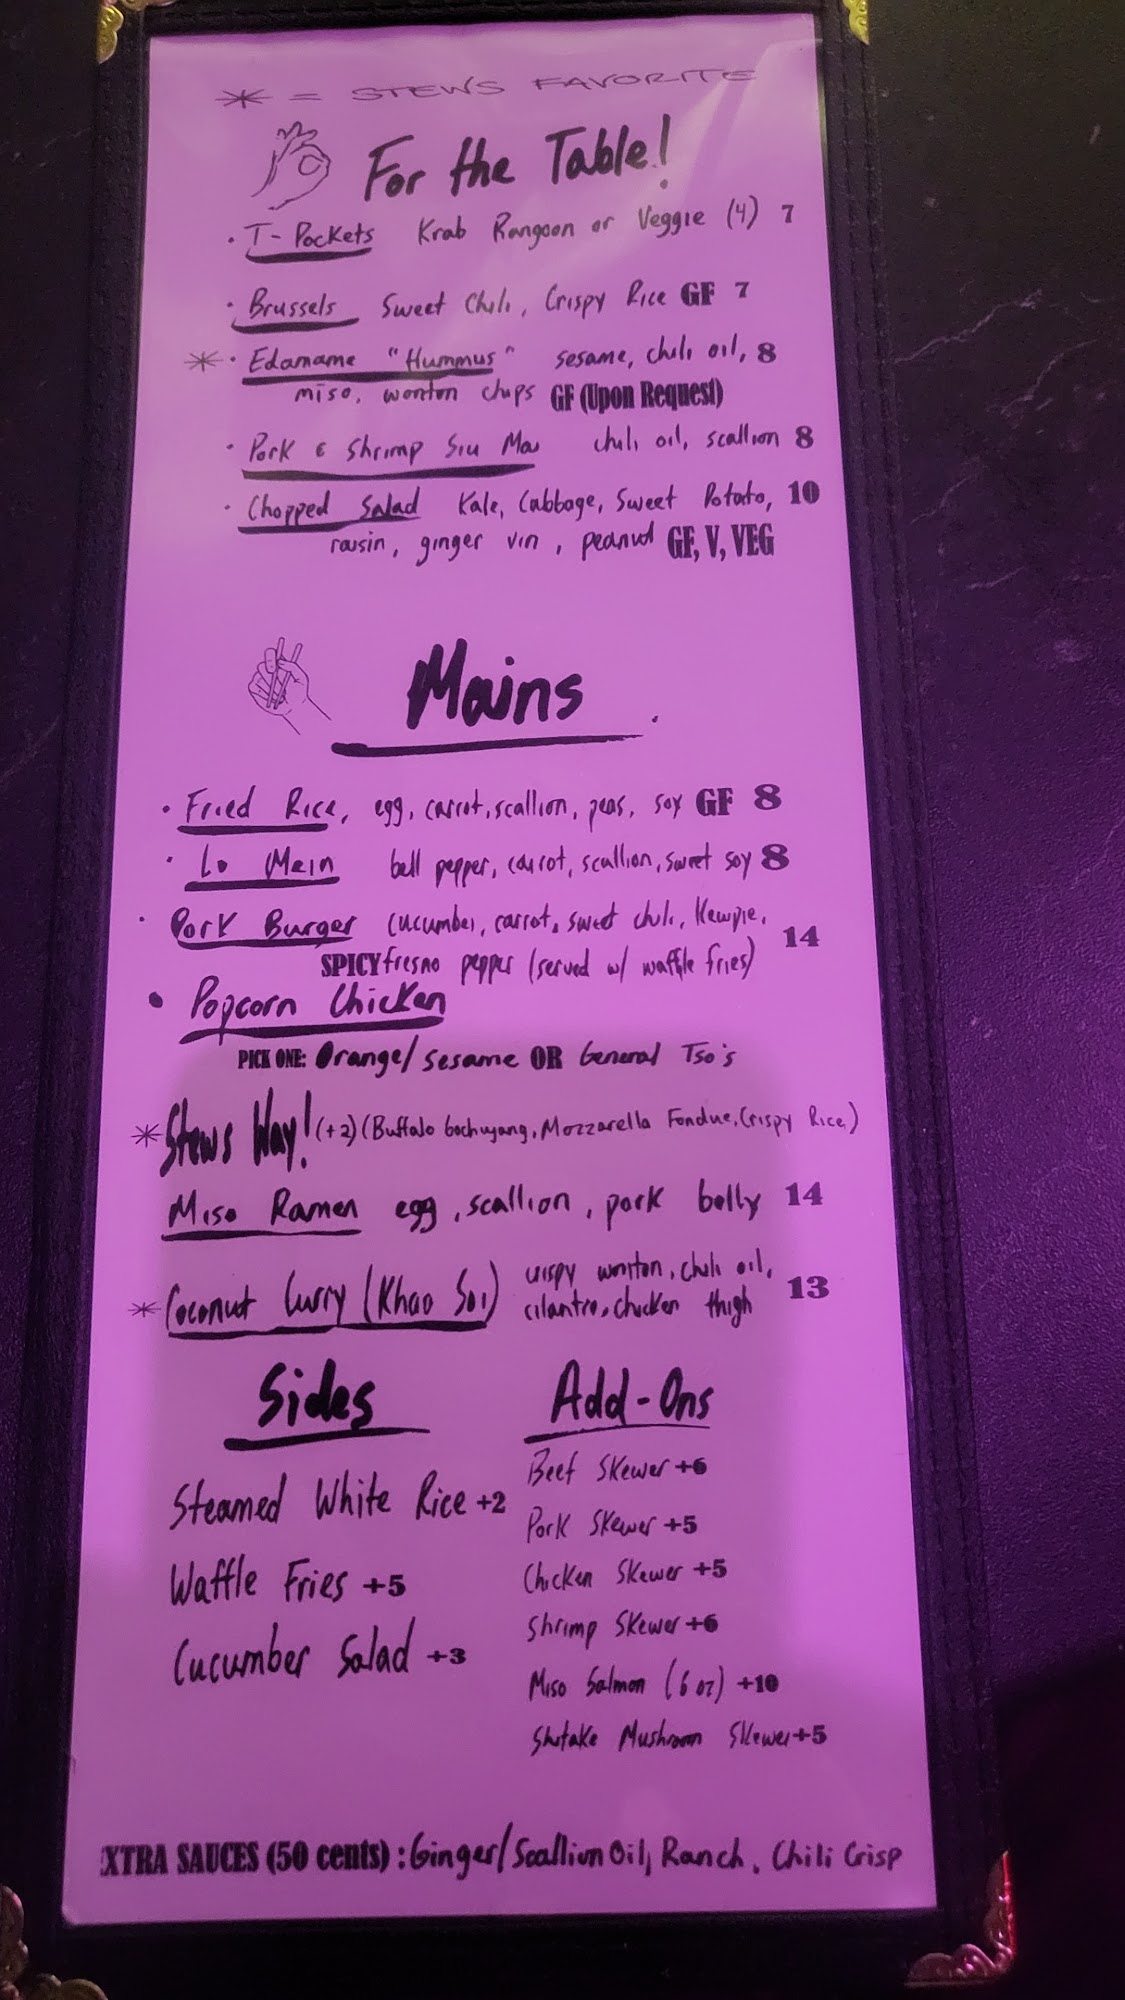 * = STEWS FAVORITE
For the Table!
· T-Pockets Krab Rangoon or Veggie (4) 7
· Brussels Sweet Chili, Crispy Rice GF 7
* · Edamame "Hummus" sesame, chili oil, 8
miso, wonton chips GF (Upon Request)
· Pork & Shrimp Siu Mai chili oil, scallion 8
· Chopped Salad Kale, Cabbage, Sweet Potato, 10
raisin, ginger vin, peanut GF, V, VEG
Mains
· Fried Rice, egg, carrot, scallion, peas, soy GF 8
· Lo Mein bell pepper, carrot, scallion, sweet soy 8
· Pork Burger cucumber, carrot, sweet chili, Kewpie, 14
SPICY fresno pepper (served w/ waffle fries)
• Popcorn Chicken
PICK ONE: Orange/Sesame OR General Tso's
* Stews Way! (+2) (Buffalo Gochujang, Mozzarella Fondue, Crispy Rice)
Miso Ramen egg, scallion, pork belly 14
* Coconut Curry (Khao Soi) crispy wonton, chili oil, 13
cilantro, chicken thigh
Sides
Steamed White Rice +2
Waffle Fries +5
Cucumber Salad +3
Add-Ons
Beef Skewer +6
Pork Skewer +5
Chicken Skewer +5
Shrimp Skewer +6
Miso Salmon (6 oz) +10
Shitake Mushroom Skewer +5
EXTRA SAUCES (50 cents) : Ginger/Scallion Oil, Ranch, Chili Crisp